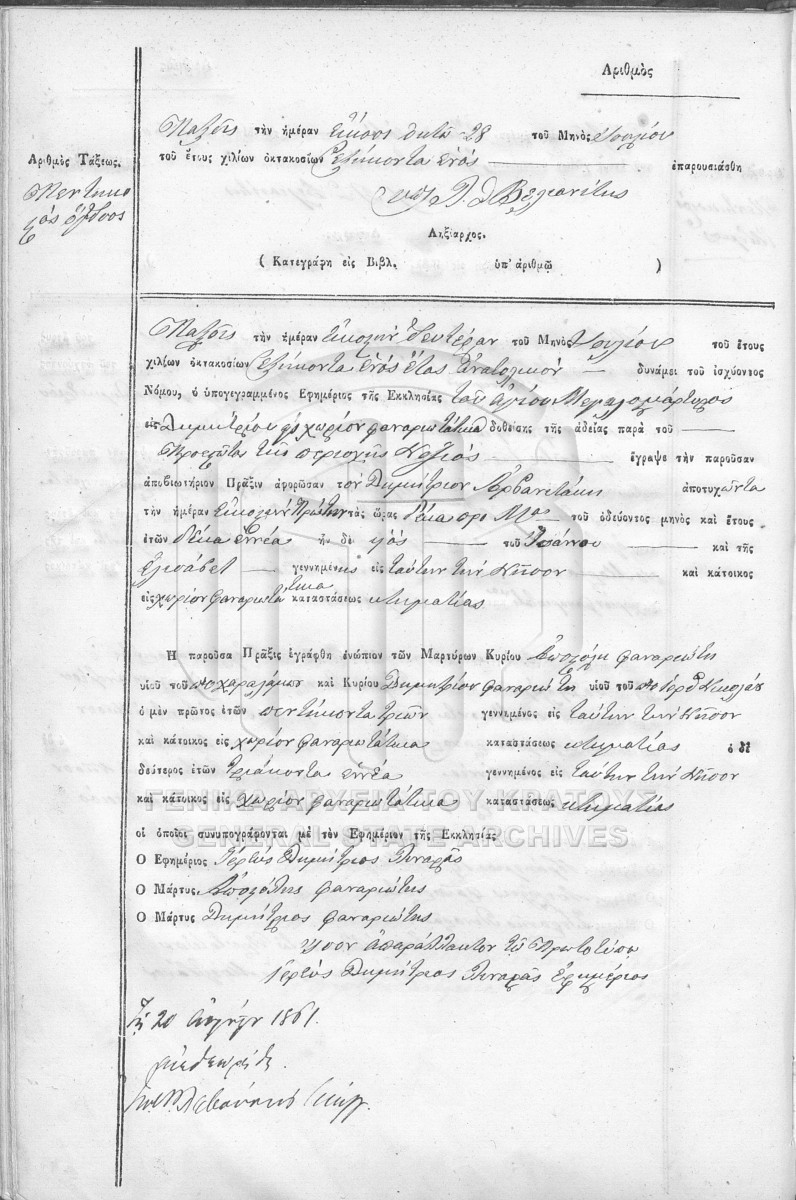 Ἀριθμὸς
Ἀριθμὸς Τάξεως.
Πεντηκο
στὸς ὄγδοος
Παξοῖς τὴν ἡμέραν εἴκοσι ὀκτὼ 28 τοῦ Μηνὸς Ἰουλίου
τοῦ ἔτους χιλίων ὀκτακοσίων ἑξήκοντα ἑνὸς ἐπαρουσιάσθη
Βελιανίτης
Ληξίαρχος.
( Κατεγράφη εἰς Βιβλ. ὑπ' ἀριθμῷ )
Παξοῖς τὴν ἡμέραν εἰκοστὴν δευτέραν τοῦ Μηνὸς Ἰουλίου τοῦ ἔτους
χιλίων ὀκτακοσίων ἑξήκοντα ἑνὸς ἔτος ἀνατολικὸν δυνάμει τοῦ ἰσχύοντος
Νόμου, ὁ ὑπογεγραμμένος Ἐφημέριος τῆς Ἐκκλησίας τοῦ Ἁγίου Μεγαλομάρτυρος
εἰς Δημητρίου χωρίον Φαναριωτάτικα δοθείσης τῆς ἀδείας παρὰ τοῦ
Προεστῶτος τῆς περιοχῆς ἔγραψε τὴν παροῦσαν
ἀποβιωτήριον Πρᾶξιν ἀφορῶσαν τὸν Δημήτριον Ἀρβανιτάκη ἀποτυχόντα
τὴν ἡμέραν εἰκοστὴν πρώτην τὰς ὥρας δέκα πρὸ Μας τοῦ ὁδεύοντος μηνὸς καὶ ἔτους
ἐτῶν δέκα ἐννέα ἦν δὲ υἱὸς τοῦ Ἰωάννου καὶ τῆς
Ἐλισάβετ γεννημένης εἰς ταύτην τὴν Νῆσον καὶ κάτοικος
εἰς χωρίον Φαναριωτάτικα καταστάσεως κτηματίας
Ἡ παροῦσα Πρᾶξις ἐγράφθη ἐνώπιον τῶν Μαρτύρων Κυρίου Ἀποστόλη Φαναριώτης
υἱοῦ τοῦ ποτὲ Χαραλάμπου καὶ Κυρίου Δημητρίου Φαναριώτη υἱοῦ τοῦ ποτὲ Νικολάου
ὁ μὲν πρῶτος ἐτῶν πεντήκοντα τριῶν γεννημένος εἰς ταύτην τὴν Νῆσον
καὶ κάτοικος εἰς χωρίον Φαναριωτάτικα καταστάσεως κτηματίας ὁ δὲ
δεύτερος ἐτῶν τριάκοντα ἐννέα γεννημένος εἰς ταύτην τὴν Νῆσον
καὶ κάτοικος εἰς χωρίον Φαναριωτάτικα καταστάσεως κτηματίας
ΓΕΝΙΚΑ ΑΡΧΕΙΑ ΤΟΥ ΚΡΑΤΟΥΣ
οἱ ὁποῖοι συνυπογράφονται μὲ τὸν Ἐφημέριον τῆς Ἐκκλησίας
GENERAL STATE ARCHIVES
Ὁ Ἐφημέριος Ἱερεὺς Δημήτριος
Ὁ Μάρτυς Ἀποστόλης Φαναριώτης
Ὁ Μάρτυς Δημήτριος Φαναριώτης
Ἴσον ἀπαράλλακτον τῷ Πρωτοτύπῳ
Ἱερεὺς Δημήτριος Ἐφημέριος
Τῇ 20 1861.